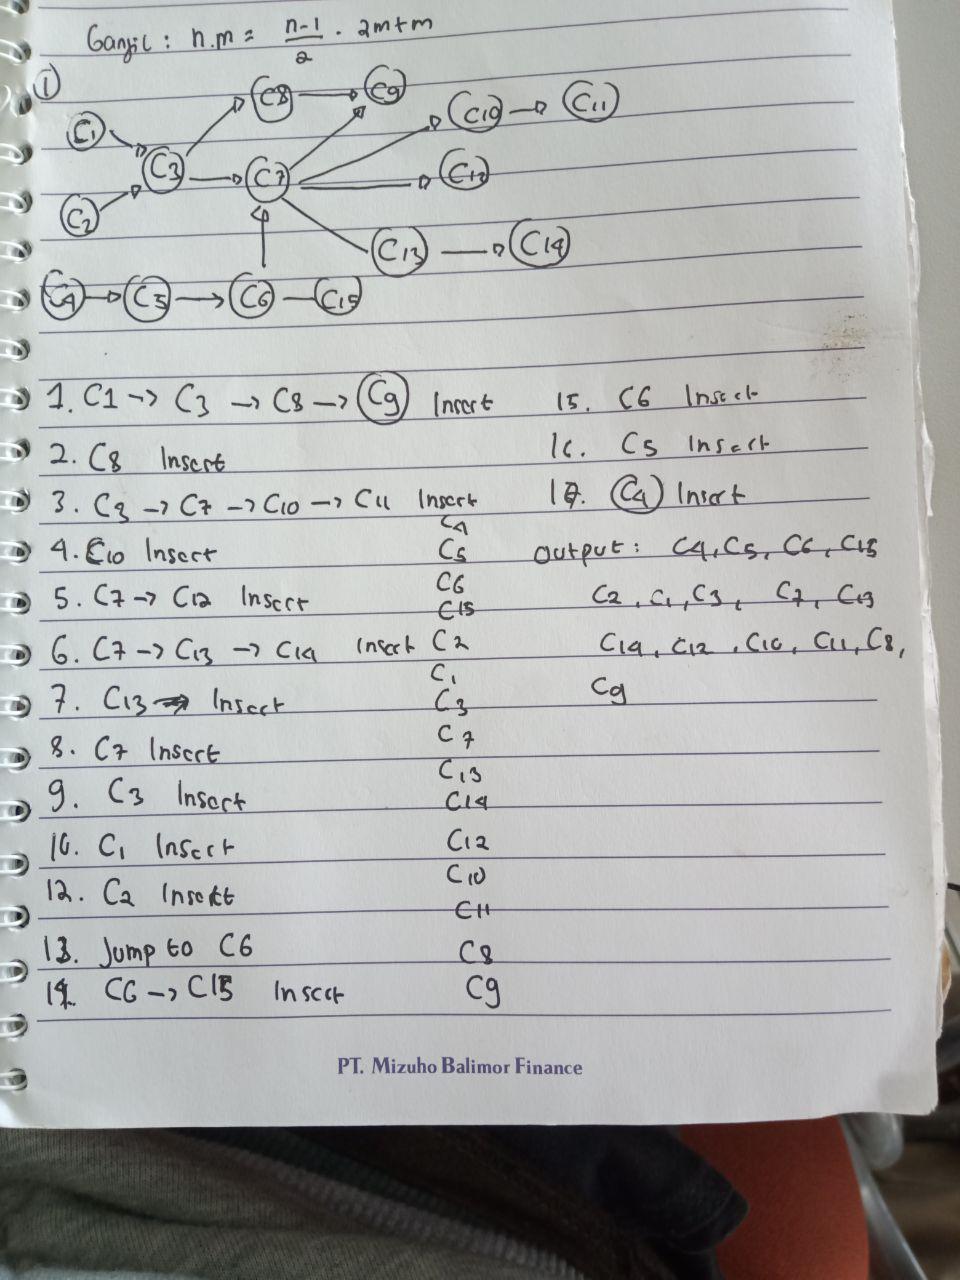 Ganjil : n.m = n-1/2 . 2m+m
①
C8 → C9
C10 → C11
C1
C3 → C7
C12
C2
C13 → C14
C4 → C5 → C6 — C15
1. C1 → C3 → C8 → C9 Insert
2. C8 Insert
3. C3 → C7 → C10 → C11 Insert
4. C10 Insert
5. C7 → C12 Insert
6. C7 → C13 → C14 Insert
7. C13 → Insert
8. C7 Insert
9. C3 Insert
10. C1 Insert
12. C2 Insert
13. Jump to C6
14. C6 → C15 Insert
C4
C5
C6
C15
C2
C1
C3
C7
C13
C14
C12
C10
C11
C8
C9
15. C6 Insert
16. C5 Insert
17. C4 Insert
Output : C4, C5, C6, C15
C2, C1, C3, C7, C13
C14, C12, C10, C11, C8,
C9
PT. Mizuho Balimor Finance